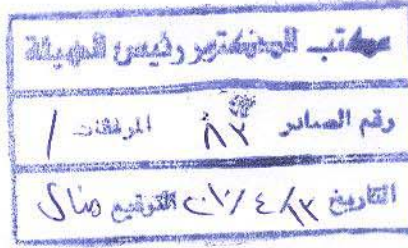 مكتب الدكتور رئيس الهيئة
رقم الصادر ٨٢ المرفقات /
التاريخ ٢٠١٠/٤/١٢ التوقيع منال